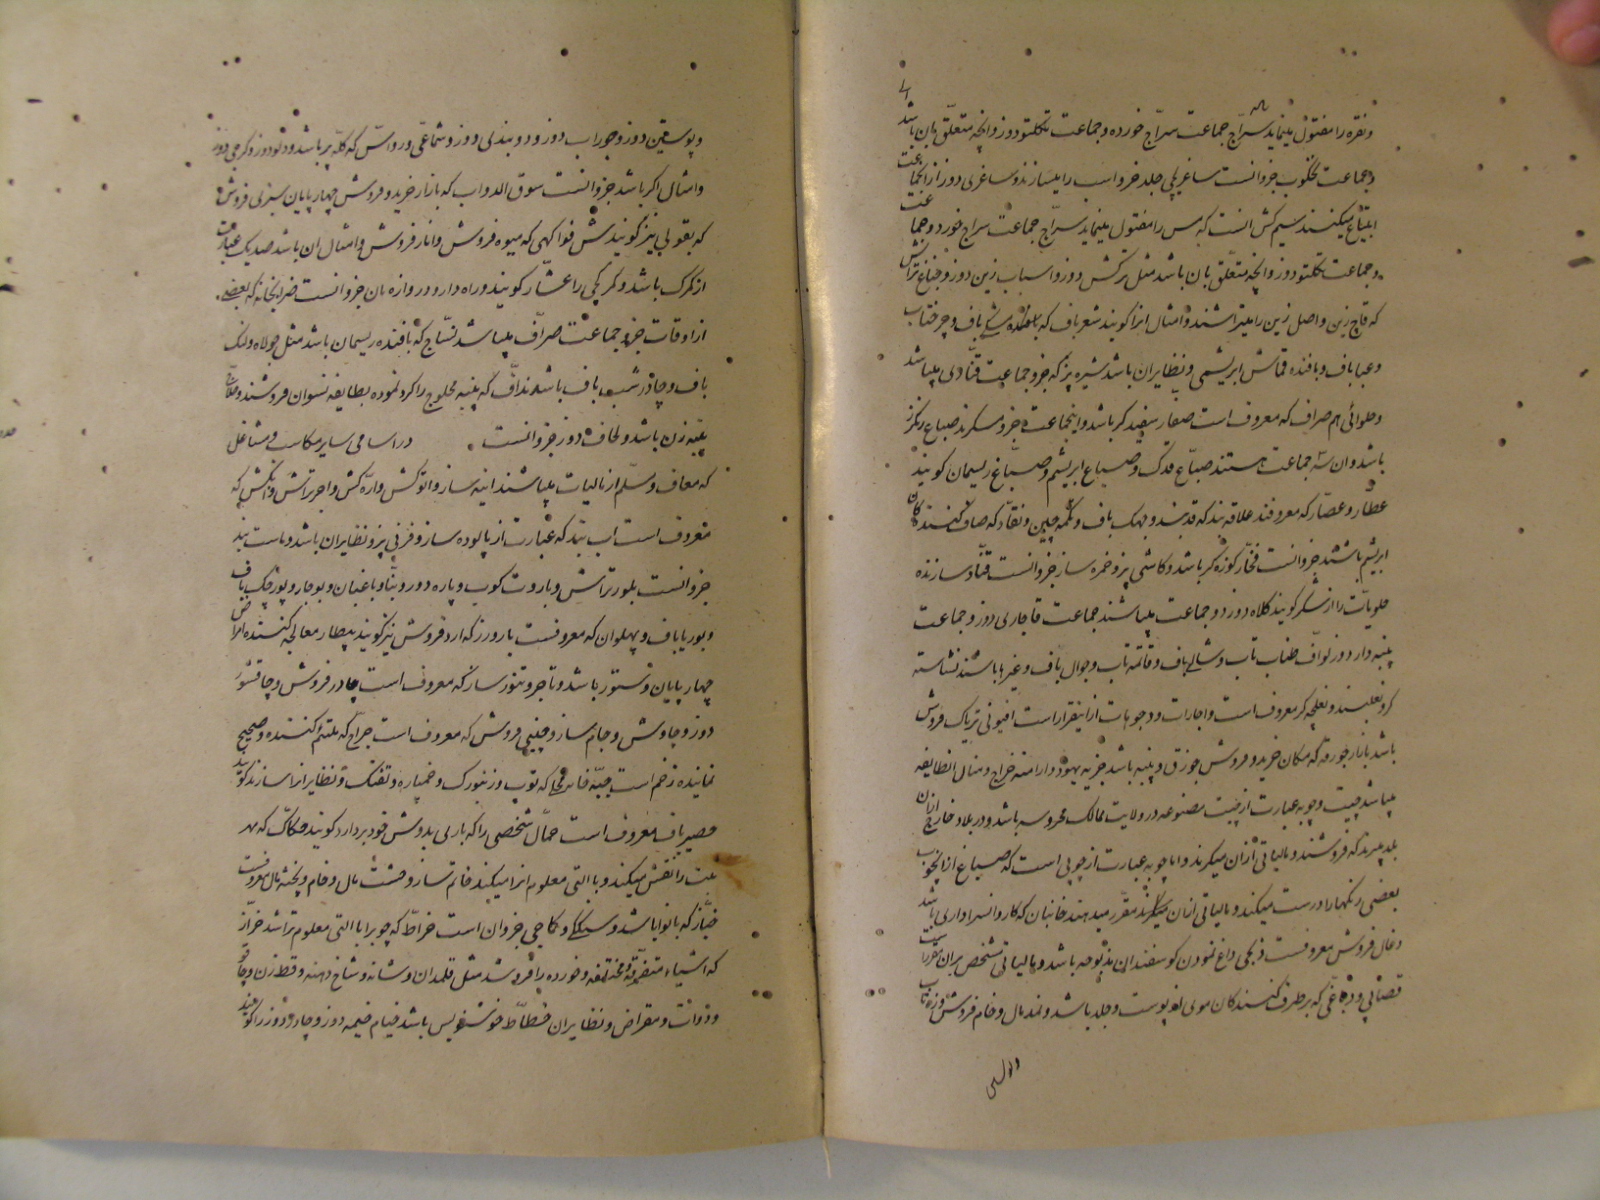 ونقره را مفتول مینماید سرّاج جماعت سرّاج خورده و جماعت تکلتو دوز وانچه متعلّق بان باشد
وجماعت نخکوب جزوانست ساغریچی جلد خر واسب را میسازند و ساغری دوز از انجماعت
ابتیاع میکنند سیم کش انست که مس را مفتول مینماید سرّاج جماعت سراج خورد وجماعت
وجماعت تکلتو دوز وانچه متعلّق بان باشد مثل ترکش دوز واسباب زین دوز وجناغ تراش
که قاچ زین واصل زین را میتراشند وامثال انرا کویند شعرباف که بافنده باف وچرختاب
وعبا باف وبافنده قماش ابریشمی ونظایر ان باشد شیره پز که جزو جماعت قنّادی میباشد
وحلوائی هم صراف که معروف است صفّار سفید کر باشد واینجماعت جزو مسکرند صباغ رنکرز
باشد وان سه جماعت هستند صبّاغ قدک وصباغ ابریشم وصبّاغ ریسمان کویند
عطّار وعصّار که معروفند علاقه بند که قد بند و باف وتکمه چین ونقاد که صاف کنندکان
ابریشم باشند جزوانست فخّار کوزه کر باشد وکاشی پز وخمره ساز جزوانست قنّاد سازنده
حلویات را از شکر کویند کلاه دوز دو جماعت میباشند جماعت قاجاری دوز وجماعت
پنبه دار دوز لوّاف طناب تاب وشالباف وقاتمه تاب وجوال باف وغیرها باشند نشاسته
کر ونعلبند ونعلچه کر معروف است واجارات ووجوهات از اینقرار است افیونی تریاک فروش
باشد بازار جوزقه که مکان خرید وفروش جوزق وپنبه باشد جزیه یهود وارامنه خراج ومنال انطایفه
میباشد چیت وچوبه عبارت از چیت مصنوعه در ولایت ممالک محروسه باشد ودر بلاد خارج از ان
بلد میبرند که فروشند ومالیاتی از ان میکیرند واما چوبه عبارت از چوبی است که صباغ از انچوب
بعضی رنکها را درست میکند ومالیاتی از ان میکیرند مقرر میدهند خانبان که کاروانسراداری باشد
دغال فروش معروفست داغ نمودن کوسفندان باشد ومالیاتی مشخص بران مقرّر است
قصّابی ودبّاغی که برطرف کنندکان موی پوست وجلد باشد ونمد مال وخام فروش وزه تاب
وپوستین
وپوستین دوز وجوراب دوز ودوبندی دوز وشمّاعی وروّاس که کلّه پز باشد ودلو دوز وکرجی دوز
وامثال اکر باشد جزوانست سوق الدواب که بازار خرید وفروش چهارپایان سبزی فروش
که بقولی نیز کویندش فواکهی که میوه فروش وانار فروش وامثال ان باشد صدیک عبارت
از کمرک باشد وکمرکچی را عشّار کویند وراه دار ودروازه بان جزوانست ضرابخانه که بعضی
از اوقات جزو جماعت صرّاف میباشد نسّاج که بافنده ریسمان باشد مثل جولاه ولنک
باف وچادر شب باف باشد ندّاف که پنبه محلوج را کرد نموده بطایفه نسوان فروشند وحلاّج
پنبه زن باشد ولحاف دوز جزوانست در اسامی سایر مکاسب ومشاغل
که معاف ومسلّم از مالیات میباشند اینه ساز واتوکش وارّه کش واجر تراش وابکش که
معروف است اب بند که عبارت از پالوده ساز وفرنی پز ونظایر ان باشد وماست بند
جزوانست بلور تراش وباروت کوب وپاره دوز وبنّا وباغبان وبوجار وپوزچک باف
وبوریا باف وپهلوان که معروفست بارورز که ارد فروش نیز کویند بیطار معالجه کننده امراض
چهارپایان وستور باشد وتاجر وتنور ساز که معروف است چادر فروش وچاقشور
دوز وچاوش وجام ساز وچینی فروش که معروف است جرّاح که ملتئم کننده وصحیح
نماینده زخم است جبّه خانه چی که توپ وزنبورک وخمپاره وتفنک ونظایر انرا سازند کویند
حصیرباف معروف است حمّال شخصی را که باری بدوش خود بردارد کویند حکّاک که مهر
را نقش میکند وبا التی معلوم انرا میکند خاتم ساز وخشت مال وخام وپخته مال معروفست
خبّاز که نانوا باشد وسنککی وکماجی جزو ان است خرّاط که چوبرا با التی معلوم تراشد خرّاز
که اشیاء متفرقه ومختلفه وخورده را فروشد مثل قلمدان وشانه وشاخ دهنه وقط زن وچاقو
ودوات ومقراض ونظایر ان خطّاط خوشنویس باشد خیام خیمه دوز وچادر دوز را کویند